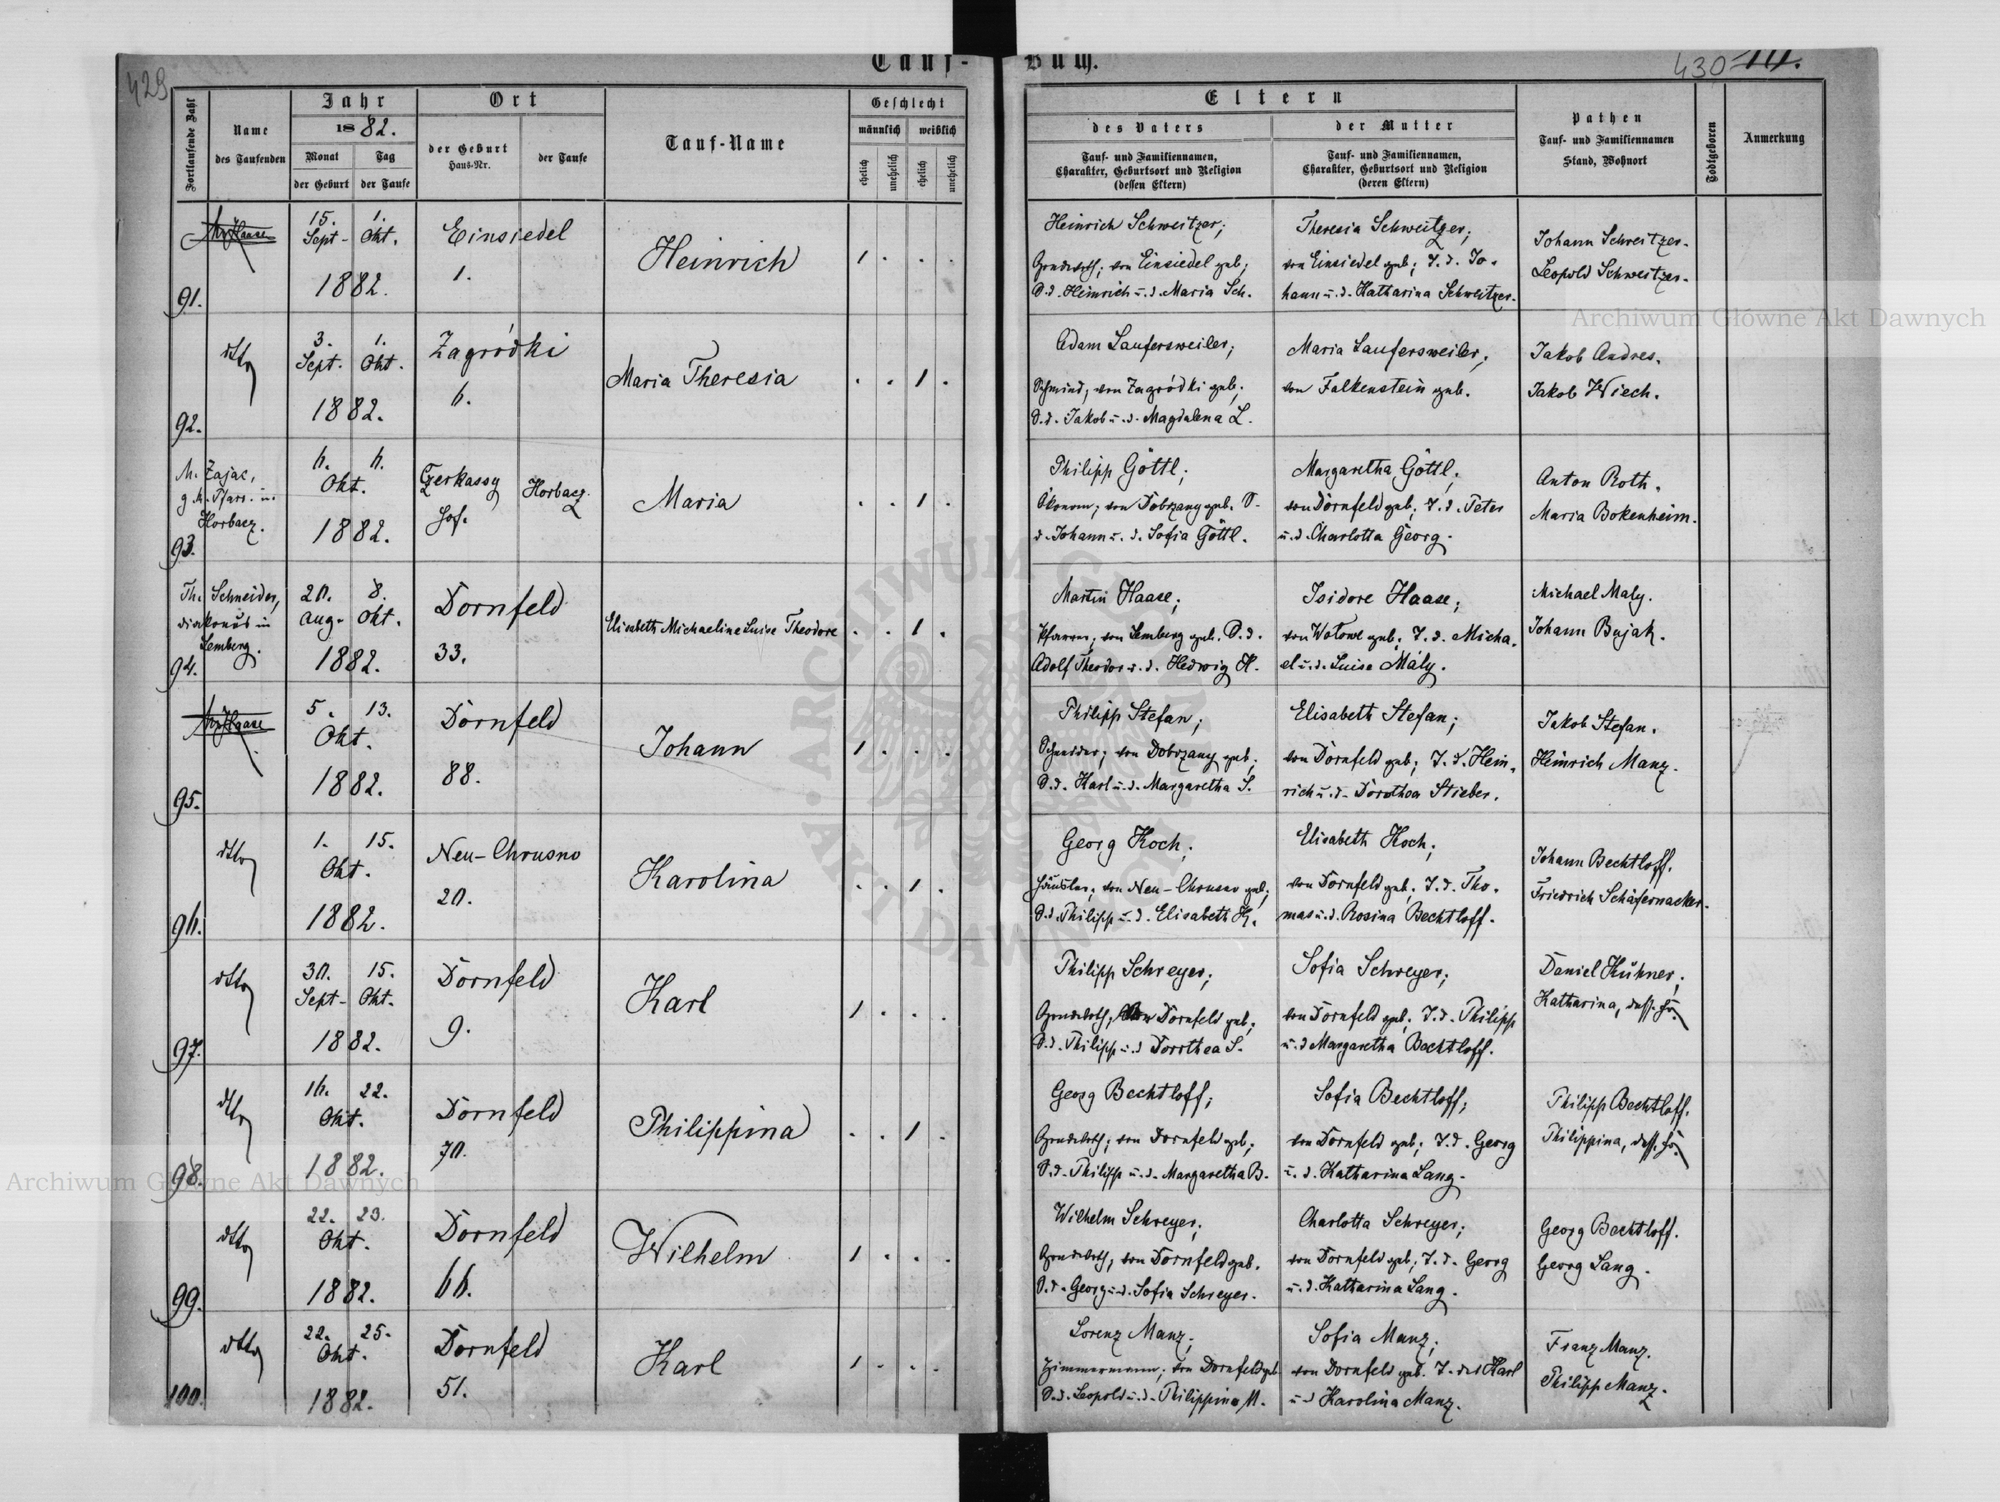 429
Tauf-
Buch.
430
Fortlaufende Zahl
Name
des Taufenden
Jahr
1882.
Monat
Tag
der Geburt
der Taufe
Ort
der Geburt
Haus-Nr.
der Taufe
Tauf-Name
Geschlecht
männlich
weiblich
ehelich
unehelich
ehelich
unehelich
Eltern
des Vaters
Tauf- und Familiennamen,
Charakter, Geburtsort und Religion
(dessen Eltern)
der Mutter
Tauf- und Familiennamen,
Charakter, Geburtsort und Religion
(deren Eltern)
Pathen
Tauf- und Familiennamen
Stand, Wohnort
Todtgeboren
Anmerkung
91.
Haase
15. 1.
Sept- Okt.
1882.
Einsiedel
1.
Heinrich
1 . . .
Heinrich Schweitzer;
Grundwirth; von Einsiedel geb;
S.d. Heinrich u. d. Maria Sch.
Theresia Schweitzer;
von Einsiedel geb; T. d. Jo-
hann u. d. Katharina Schweitzer.
Johann Schweitzer.
Leopold Schweitzer.
92.
dtto
3. 1.
Sept. Okt.
1882.
Zagródki
6.
Maria Theresia
. . 1 .
Adam Laufersweiler;
Schmied, von Zagródki geb;
S.d. Jakob u. d. Magdalena L.
Maria Laufersweiler;
von Falkenstein geb.
Jakob Andres.
Jakob Wiech.
93.
M. Zajac,
g. k. Pfarr. in
Horbacz.
6. 6.
Okt.
1882.
Czerkassy
Hof.
Horbacz.
Maria
. . 1 .
Philipp Göttl;
Ökonom; von Dobrzany geb. S.
d. Johann u. d. Sofia Göttl.
Margaretha Göttl;
von Dornfeld geb; T. d. Peter
u. d. Charlotta Georg.
Anton Roth.
Maria Bokenheim.
94.
Th. Schneider,
diakonus in
Lemberg.
20. 8.
Aug- Okt.
1882.
Dornfeld
33.
Elisabeth Michaeline Luise Theodore
. . 1 .
Martin Haase;
Pfarrer; von Lemberg geb. S.d.
Adolf Theodor u. d. Hedwig H.
Isidore Haase;
geb; T. d. Micha-
el u. d. Luise Mály.
Michael Maly.
Johann Bujak.
95.
Haase
5. 13.
Okt.
1882.
Dornfeld
88.
Johann
1 . . .
Philipp Stefan;
Schneider; von Dobrzany geb;
S.d. Karl u. d. Margaretha S.
Elisabeth Stefan;
von Dornfeld geb; T. d. Hein-
rich u. d. Dorothea Stieber.
Jakob Stefan.
Heinrich Manz.
96.
dtto
1. 15.
Okt.
1882.
Neu-Chrusno
20.
Karolina
. . 1 .
Georg Koch;
Häusler; von Neu-Chrusno geb;
S.d. Philipp u. d. Elisabeth K.
Elisabeth Koch;
von Dornfeld geb; T. d. Tho-
mas u. d. Rosina Bechtloff.
Johann Bechtloff.
Friedrich Schäfernacker.
97.
dtto
30. 15.
Sept- Okt.
1882.
Dornfeld
9.
Karl
1 . . .
Philipp Schreyer;
Grundwirth; von Dornfeld geb;
S.d. Philipp u. d. Dorothea S.
Sofia Schreyer;
von Dornfeld geb; T. d. Philipp
u. d. Margaretha Bechtloff.
Daniel Kühner;
Katharina,
98.
dtto
16. 22.
Okt.
1882.
Dornfeld
70.
Philippina
. . 1 .
Georg Bechtloff;
Grundwirth; von Dornfeld geb;
S.d. Philipp u. d. Margaretha B.
Sofia Bechtloff;
von Dornfeld geb; T. d. Georg
u. d. Katharina Lang.
Philipp Bechtloff.
Philippina,
99.
dtto
22. 23.
Okt.
1882.
Dornfeld
66.
Wilhelm
1 . . .
Wilhelm Schreyer;
Grundwirth; von Dornfeld geb.
S.d. Georg u. d. Sofia Schreyer.
Charlotta Schreyer;
von Dornfeld geb; T. d. Georg
u. d. Katharina Lang.
Georg Bechtloff.
Georg Lang.
100.
dtto
22. 25.
Okt.
1882.
Dornfeld
51.
Karl
1 . . .
Lorenz Manz;
Zimmermann; von Dornfeld geb
S.d. Leopold u. d. Philippina M.
Sofia Manz;
von Dornfeld geb. T. des Karl
u. d. Karolina Manz.
Franz Manz.
Philipp Manz.
Archiwum Główne Akt Dawnych
Archiwum Główne Akt Dawnych